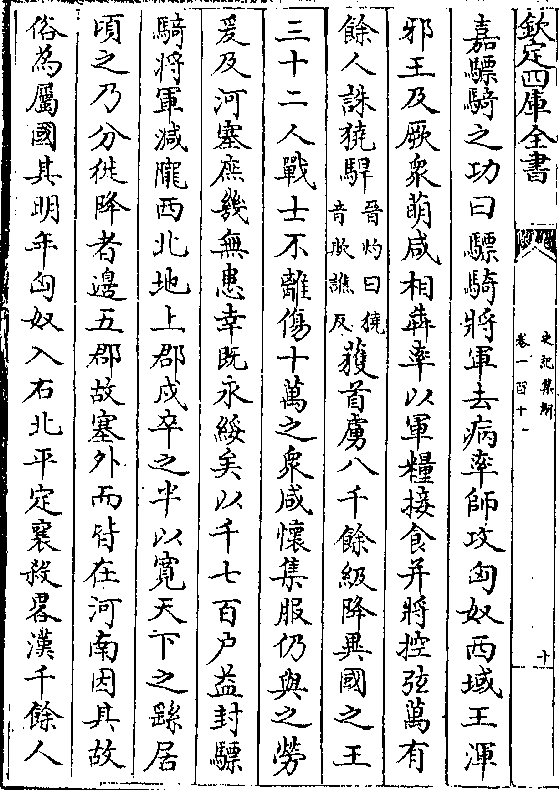 欽定四庫全書
史記集解
卷一百十一
十
嘉驃騎之功曰驃騎將軍去病率師攻匈奴西域王渾
邪王及厥衆萌咸相犇率以軍糧接食并將控弦萬有
餘人誅獟駻
晉灼曰獟
音欺譙反
獲首虜八千餘級降異國之王
三十二人戰士不離傷十萬之衆咸懷集服仍與之勞
爰及河塞庶幾無患幸既永綏矣以千七百戶益封驃
騎將軍減隴西北地上郡戍卒之半以寛天下之繇居
頃之乃分徙降者邊五郡故塞外而皆在河南因其故
俗為屬國其明年匈奴入右北平定襄殺畧漢千餘人